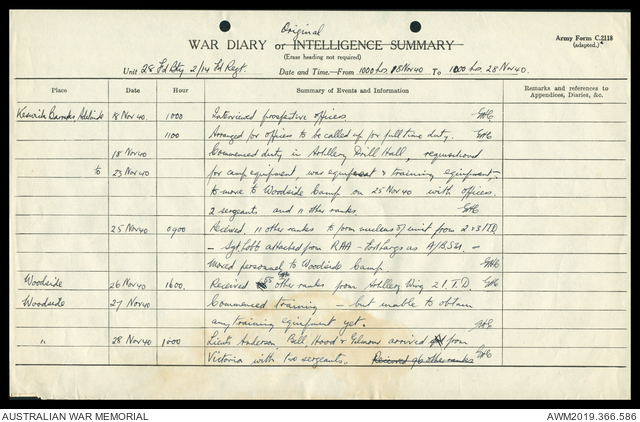 Original
WAR DIARY or INTELLIGENCE SUMMARY
Army Form C.2118
(adapted.)
(Erase heading not required)
Unit 28 Fd Bty 2/14 Fd Regt. Date and Time—From 1000 hrs. 18 Nov 40 To 1000 hrs. 28 Nov 40.
Place Date Hour Summary of Events and Information Remarks and references to
Appendices, Diaries, &c.
Keswick Barracks Adelaide 18 Nov 40. 1000 Interviewed prospective officers.
1100 Arranged for officers to be called up for full time duty.
18 Nov 40 Commenced duty in Artillery Drill Hall, requisitioned
to 23 Nov 40 for camp equipment, war equipment & training equipment
to move to Woodside Camp on 25 Nov 40 with officers,
2 sergeants and 11 other ranks.
25 Nov 40 0900 Received 11 other ranks to form nucleus of unit from
— Sgt attached from RAA — as A/BSM. —
Moved personnel to Woodside Camp
Woodside 26 Nov 40 1600. Received other ranks from Artillery Wing 2 I.T.D.
Woodside 27 Nov 40 Commenced training — but unable to obtain
any training equipment yet.
" 28 Nov 40 1000 Lieuts Anderson, Bell, Hood & Gilmour arrived from
Victoria with two sergeants. Received 96 other ranks
AUSTRALIAN WAR MEMORIAL AWM2019.366.586